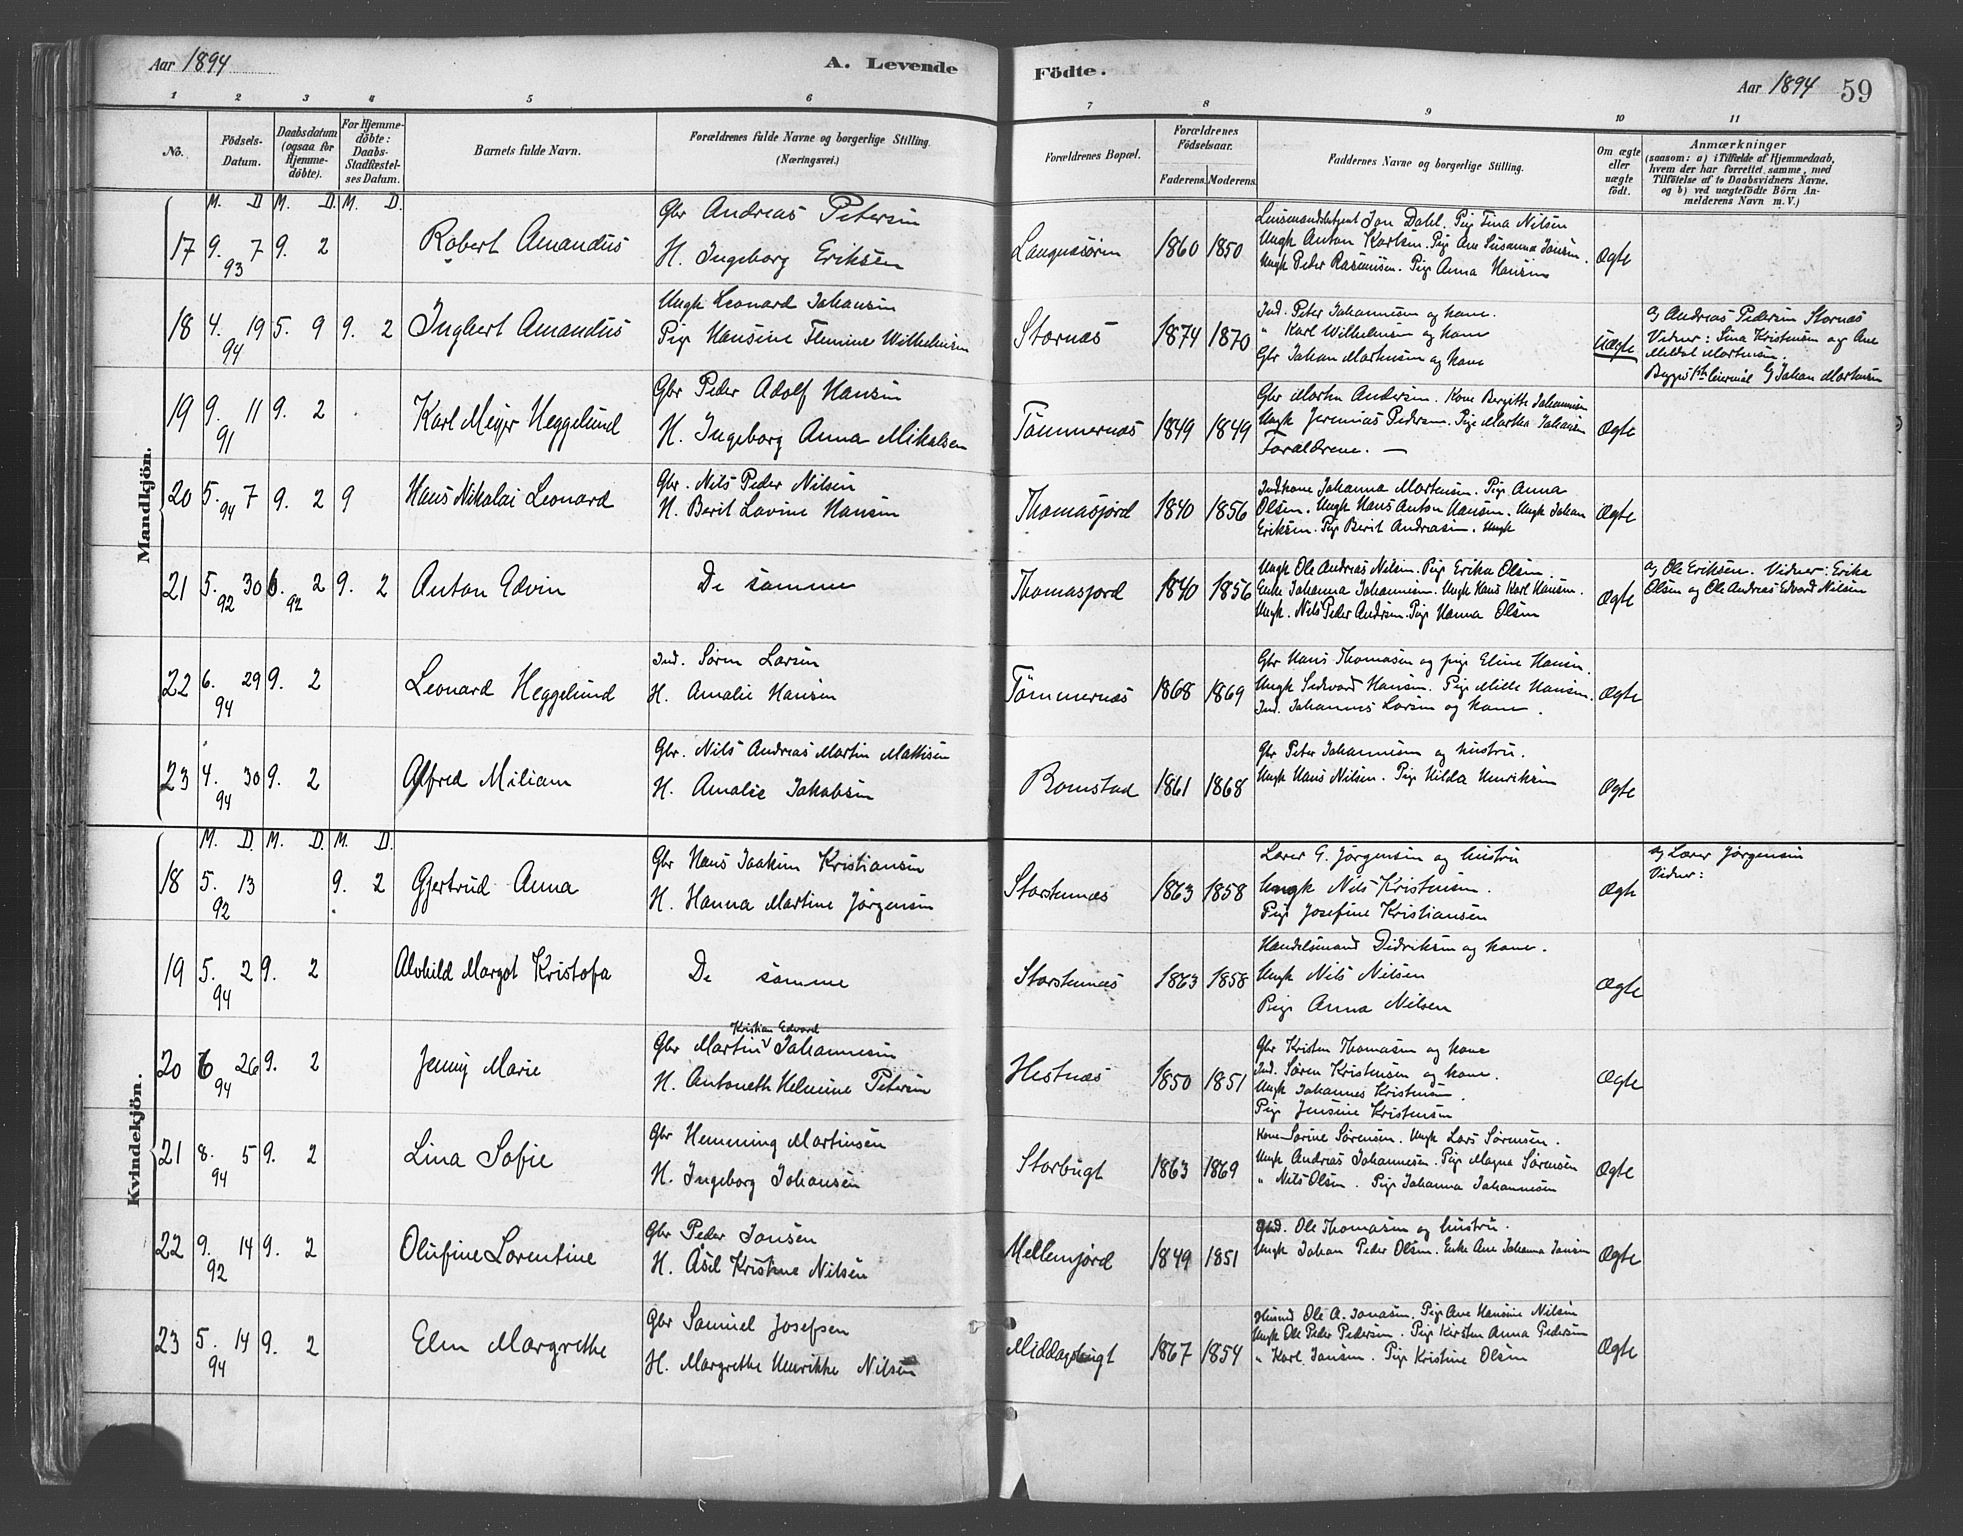 Aar 1894
A. Levende
Födte.
Aar 1894 59
1 2 3 4 5 6 7 8 9 10 11
No.
Födsels-
Datum.
Daabsdatum
(ogsaa for
Hjemme-
döbte).
For Hjemme-
döbte:
Daabs-
Stadfæstel-
ses Datum.
Barnets fulde Navn.
Forældrenes fulde Navne og borgerlige Stilling.
(Næringsvei.)
Forældrenes Bopæl.
Forældrenes
Födselsaar.
Faderens. Moderens.
Faddernes Navne og borgerlige Stilling.
Om ægte
eller
uægte
födt.
Anmærkninger
(saasom: a) i Tilfælde af Hjemmedaab,
hvem der har forrettet samme, med
Tilföielse af to Daabsvidners Navne,
og b) ved uægtefödte Börn An-
melderens Navn m.V.)
Mandkjön.
M. D. M. D. M. D.
17 9. 7 9. 2 Robert Amandus
93
Gbr Andreas Petersen
H. Ingeborg Eriksen
1860 1850
Lensmandsbetjent Jon Dahl. Pige Tina Nilsen
Ungk Anton Karlsen. Pige Ane Susanna Jonsen.
Ungk Peter Rasmusen. Pige Anna Hansen
Ægte
18 4. 19 5. 9 9. 2 Ingbert Amandus
94
Ungk Leonard Johansen
Pige Hansine Wilhelmsen
Stornæs 1874 1870
Ind. Peter Johannesen og kone.
" Karl Wilhelmsen og kone
Gbr Johan Mortensen og kone
Uægte
Andreas Pedersen Stornæs
Vidner: Sina Kristensen og Ane
Mortensen.
Johan Mortensen
19 9. 11 9. 2 Karl Meyer Heggelund
91
Gbr Peder Adolf Hansen
H. Ingeborg Anna Mikalsen
Tømmernæs 1849 1849
Gbr Martin Andersen. Kone Bergitte Johannesen
Ungk Jeremias Pedersen. Pige Martha Johansen
Forældrene. —
Ægte
20 5. 7 9. 2 9 Hans Nikolai Leonard
94
Gbr. Nils Peder Nilsen
H. Berit Lovine Hansen
Thomasjord 1840 1856
Indkone Johanna Mortensen. Pige Anna
Olsen. Ungk Hans Anton Hansen. Ungk Johan
Eriksen. Pige Berit Andreasen. Ungk
Ægte
21 5. 30 6. 2 9. 2 Anton Edvin
92 92
De samme
Thomasjord 1840 1856
Ungk Ole Andreas Nilsen. Pige Erika Olsen.
Enke Johanna Johannesen. Ungk Hans Karl Hansen.
Ungk. Nils Peder Andersen. Pige Hanna Olsen
Ægte
af Ole Eriksen. Vidner: Erika
Olsen og Ole Andreas Edvard Nilsen
22 6. 29 9. 2 Leonard Heggelund
94
Ind. Søren Larsen
H. Amalie Hansen
Tømmernæs 1868 1869
Gbr Hans Thomasen og pige Eline Hansen.
Ungk Sedvard Hansen. Pige Mille Hansen.
Ind. Johannes Larsen og kone.
Ægte
23 4. 30 9. 2 Alfred Miliam
94
Gbr. Nils Andreas Martin Mattisen
H. Amalie Jakobsen
Bomstad 1861 1868
Gbr Peter Johannesen og hustru.
Ungk Hans Nilsen. Pige Hilda Henriksen
Ægte
Kvindekjön.
M. D. M. D. M. D.
18 5. 13 9. 2 Gjertrud Anna
92
Gbr Hans Joakim Kristiansen
H. Hanna Martine Jørgensen
Storstennæs 1863 1858
Lærer G. Jørgensen og hustru
Ungk Nils Kristensen.
Pige Josefine Kristiansen
Ægte
af Lærer Jørgensen
Vidner:
19 5. 2 9. 2 Alvhild Margot Kristofa
94
De samme
Storstennæs 1863 1858
Handelsmand Didriksen og kone.
Ungk Nils Nilsen
Pige Anna Nilsen
Ægte
20 6 26 9. 2 Jenny Marie
94
Kristian Edvard
Gbr Martin Johannesen
H. Antoneth Helmine Petersen
Hestnæs 1850 1851
Gbr Kristen Thomasen og kone
Ind. Søren Kristensen og kone.
Ungk Johannes Kristensen.
Pige Jensine Kristensen
Ægte
21 8. 5 9. 2 Lina Sofie
94
Gbr Hemming Martinsen
H. Ingeborg Johansen
Storbugt 1863 1869
Kone Sarine Sørensen. Ungk Lars Sørensen.
Ungk Andreas Johannesen. Pige Magna Sørensen
" Nils Olsen. Pige Johanna Johannesen
Ægte
22 9. 14 9. 2 Olufine Lorentine
92
Gbr Peder Jonsen
H. Asel Kristine Nilsen
Mellemjord 1849 1851
Ind. Ole Thomasen og hustru.
Ungk Johan Peder Olsen. Enke Ane Johanna Jonsen
Ægte
23 5. 14 9. 2 Elen Margrethe
94
Gbr Samuel Josefsen
H. Margrethe Henrikke Nilsen
Middagsbugt 1867 1854
Husmd Ole A. Jonasen. Pige Ane Hansine Nilsen
Ungk Ole Peder Pedersen. Pige Kirsten Anna Pedersen
" Karl Jonsen. Pige Kristine Olsen
Ægte